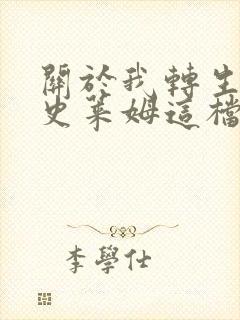 關於我轉生
史萊姆這檔
李學仕